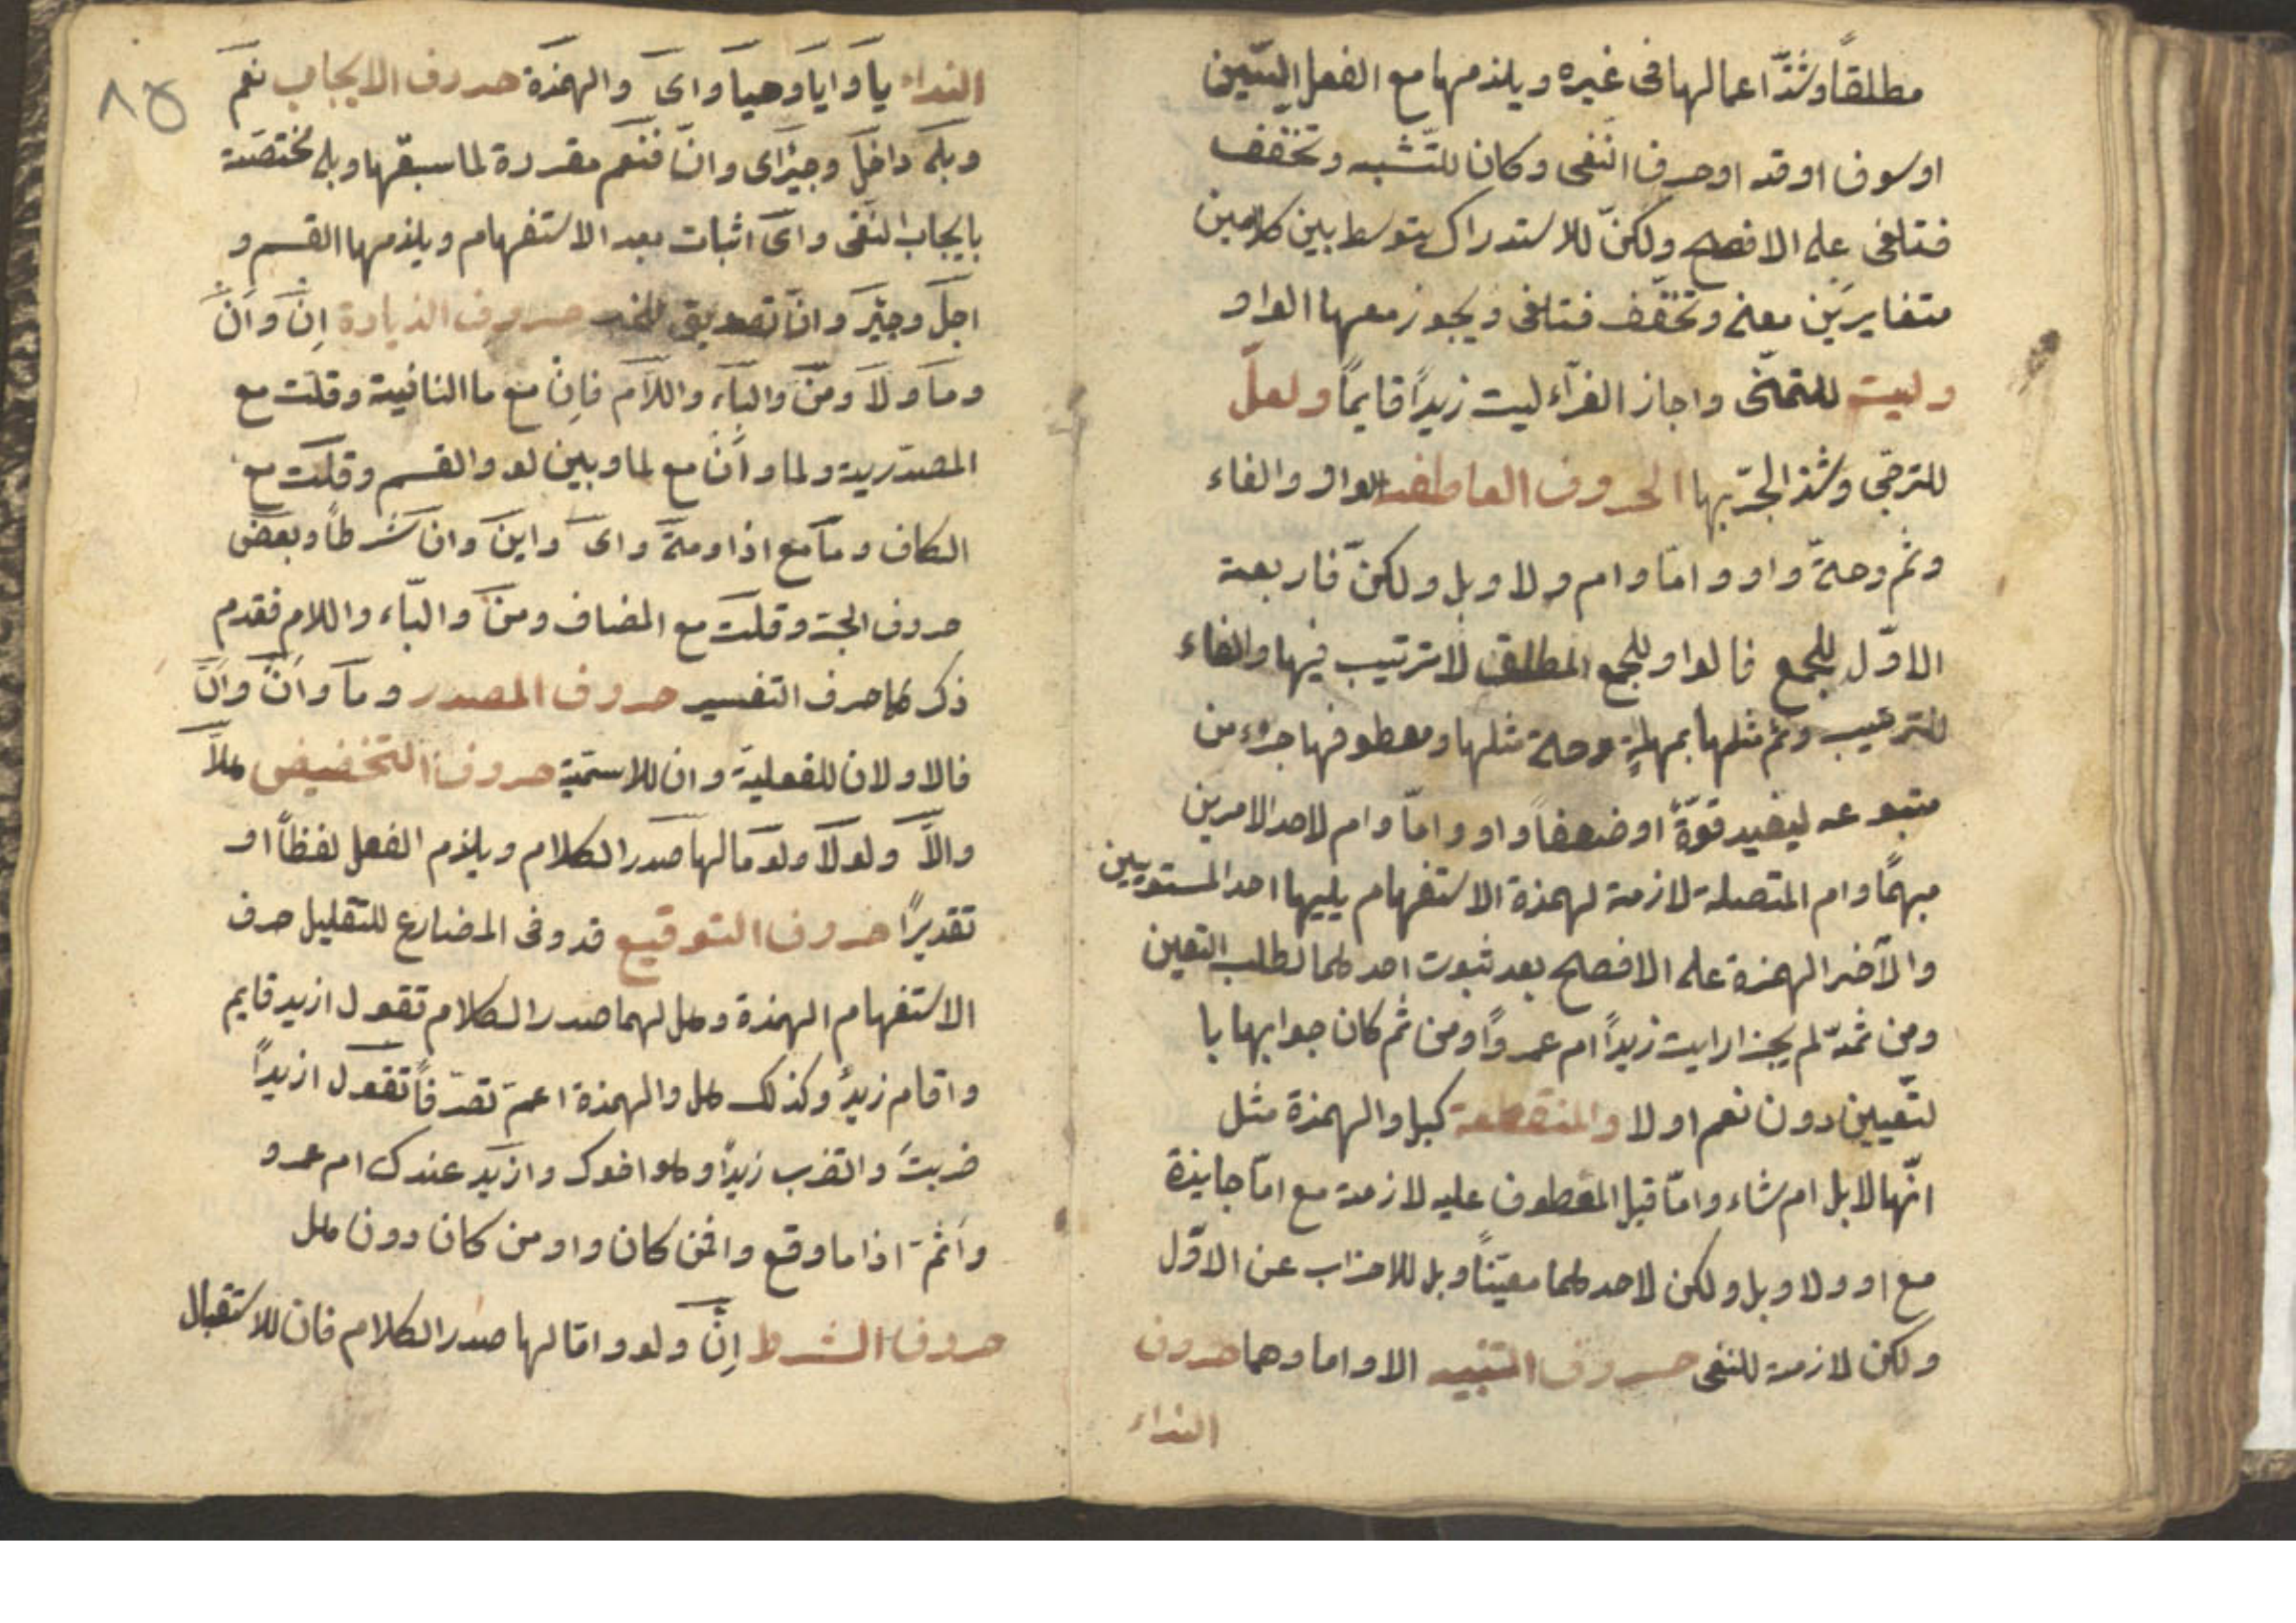 مطلقاً وشذّ اعمالها فى غيره ويلزمها مع الفعل السّين
او سوف او قد او حرف النّفى وكانّ للتّشبيه وتخفّف
فتلغى على الافصح ولكنّ للاستدراك يتوسط بين كلامين
متغايرين معنى وتخفّف فتلغى ويجوز معها الواو
وليت للتمنّى واجاز الفرّاء ليت زيداً قايماً ولعلّ
للترجّى وشذ الجرّ بها الحروف العاطفة الواو والفاء
وثم وحتىّ واو وامّا وام ولا وبل ولكنّ فاربعة
الاوّل للجمع فالواو للجمع المطلق لا ترتيب فيها والفاء
للترتيب وثم مثلها بمهلةٍ وحتى مثلها ومعطوفها جزء من
متبوعه ليفيد قوّةً او ضعفاً واو وامّا وام لاحد الامرين
مبهمًا وام المتصلة لازمة لهمزة الاستفهام يليها احد المستويين
والآخر الهمزة على الافصح بعد ثبوت احدهما لطلب التعين
ومن ثمّة لم يجز ارايت زيداً ام عمرواً ومن ثم كان جوابها با
لتّعيين دون نعم او لا والمنقطعة كبل والهمزة مثل
انّها لابل ام شاء وامّا قبل المعطوف عليه لازمة مع امّا جايزة
مع او ولا وبل ولكن لاحدهما معيّناً وبل للاضراب عن الاوّل
ولكن لازمة للنفى حروف التنبيه الا واما وهما حروف
النداء
٨٥
النداء يا وايا وهيا واى والهمزة حروف الايجاب نعم
وبلى داجل وجير اى وانّ فنعم مقررة لما سبقها وبلى مختصّة
بايجاب النفى واى اثبات بعد الاستفهام ويلزمها القسم و
اجل وجير وانّ تصديق للخبر حروف الزيادة اِن وأن
وما ولا ومن والباء واللام فاِن مع ما النافية وقلّت مع
المصدرية ولما وأن مع لما وبين لو والقسم وقلّت مع
الكاف وما مع اذا ومتى واى واين وان شرطاً وبعض
حروف الجر وقلت مع المضاف ومن والبّاء واللام فقدم
ذكرها حرف التفسير حروف المصدر وما وأن وأنّ
فالاولان للفعلية وان للاسمّية حروف التخفيض هلاّ
والاّ ولولا ولوما لها صدر الكلام ويلزم الفعل لفظاً او
تقديرًا حروف التوقيع قد وفى المضارع للتقليل حرف
الاستفهام الهمزة وهل لهما صدر الكلام تقول ازيد قايم
واقام زيدٌ وكذلك هل والهمزة اعمّ تصرّفاً تقول ازيداً
ضربت واتضرب زيداً وهو اخوك وازيد عندك ام عمرو
واثمّ اذا ما وقع وافمن كان واو من كان دون هل
حروف الشرط اِن ولو وامّا لها صدر الكلام فان للاستقبال